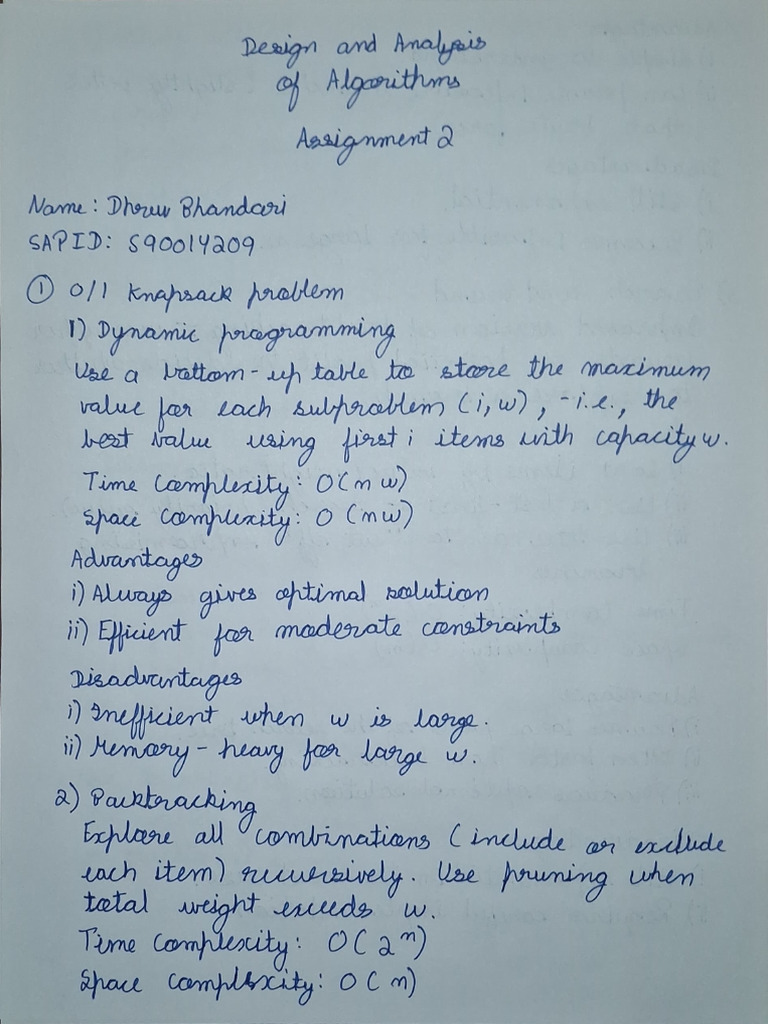 Design and Analysis
of Algorithms
Assignment 2
Name: Dhruv Bhandari
SAP ID: 590014209
① 0/1 Knapsack problem
1) Dynamic programming
Use a bottom-up table to store the maximum
value for each subproblem (i, w), -i.e., the
best value using first i items with capacity w.
Time complexity: O(nw)
Space complexity: O(nw)
Advantages
i) Always gives optimal solution
ii) Efficient for moderate constraints
Disadvantages
i) Inefficient when w is large.
ii) Memory-heavy for large w.
2) Backtracking
Explore all combinations (include or exclude
each item) recursively. Use pruning when
total weight exceeds w.
Time complexity: O(2ⁿ)
Space complexity: O(n)